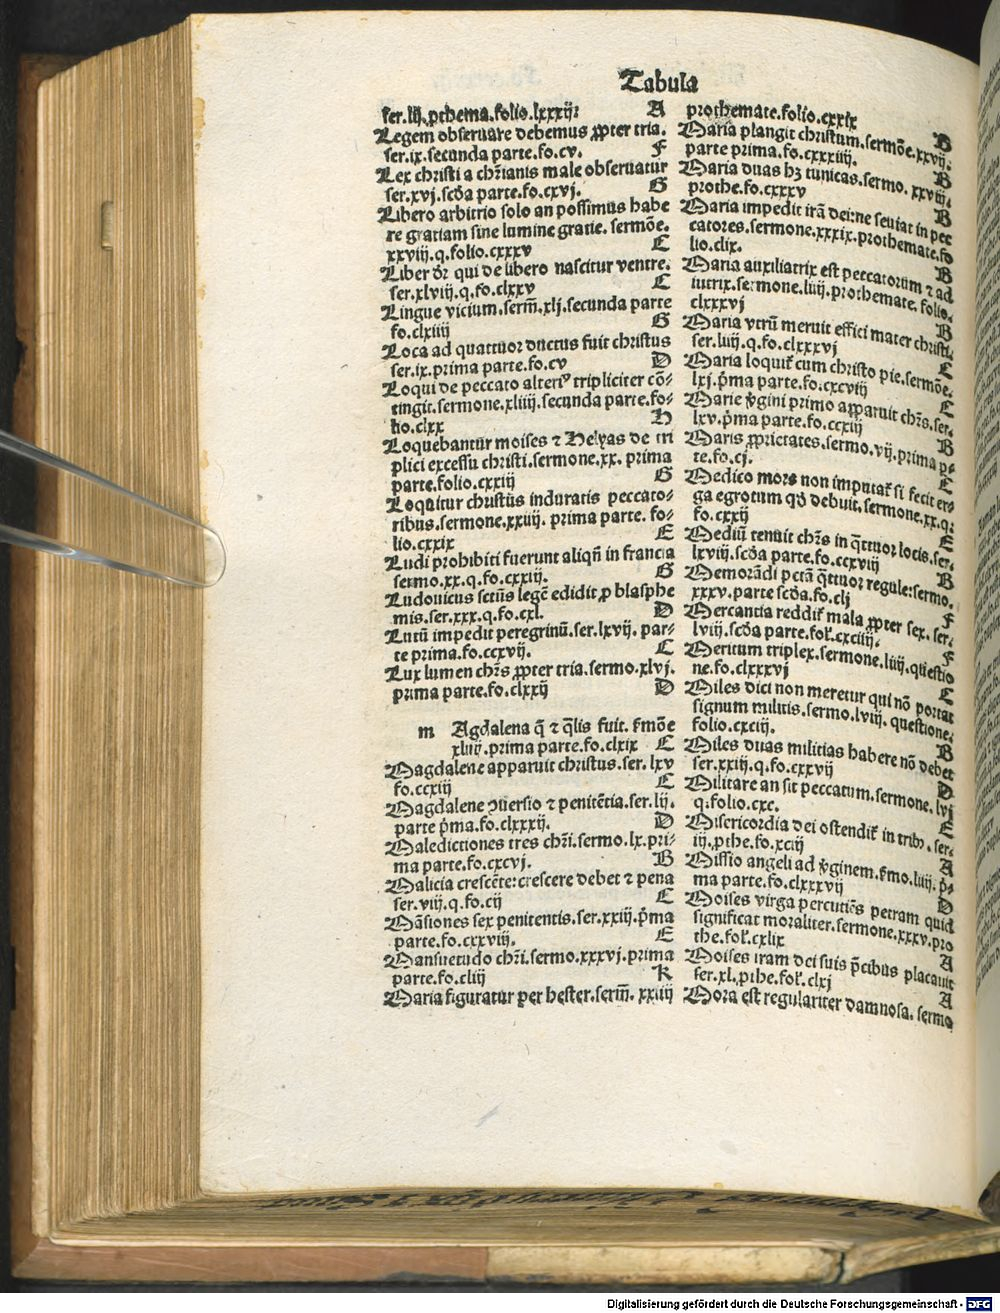 Tabula
ser.lij.ꝓthema.folio.lxxxij: A
Legem obseruare debemus ꝓpter tria.
ser.ix.secunda parte.fo.cv. F
Lex christi a chr̄ianis male obseruatur
ser.xvj.scḋa parte.fo.cxvj. G
Libero arbitrio solo an possimus habe
re gratiam sine lumine gratie. sermōe.
xxviij.q.folio.cxxxv C
Liber dr̄ qui de libero nascitur ventre.
ser.xlviij.q.fo.clxxv C
Lingue vicium.serm̄.xlj.secunda parte
fo.clxiiij G
Loca ad quattuor ductus fuit christus
ser.ix.prima parte.fo.cv D
Loqui de peccato alteriꝰ tripliciter cō⸗
tingit.sermone.xliiij.secunda parte.fo⸗
lio.clxx H
Loquebantur moises ⁊ Helyas de tri
plici excessu christi.sermone.xx. prima
parte.folio.cxxiij G
Loquitur christus induratis peccato⸗
ribus.sermone.xxiiij. prima parte. fo⸗
lio.cxxix E
Ludi prohibiti fuerunt aliqn̄ in francia
sermo.xx.q.fo.cxxiij. G
Ludouicus sctūs legē edidit ꝓ blasphe
mis.ser.xxx.q.fo.cxl. D
Lutū impedit peregrinū.ser.lxvij. par⸗
te prima.fo.ccxvij. C
Lux lumen chr̄s ꝓpter tria.sermo.xlvj.
prima parte.fo.clxxij D
m Agdalena q̄ ⁊ q̄lis fuit. s̄mōe
xliij.prima parte.fo.clxix C
Magdalene apparuit christus.ser. lxv
fo.ccxiij C
Magdalene ꝯuersio ⁊ penitētia.ser.lij.
parte p̄ma.fo.clxxxij. D
Maledictiones tres chr̄i.sermo.lx.pri⸗
ma parte.fo.cxcvj. B
Malicia crescēte:crescere debet ⁊ pena
ser.viij.q.fo.cij C
Māsiones sex penitentis.ser.xxiij.p̄ma
parte.fo.cxxviij. E
Mansuetudo chr̄i.sermo.xxxvj.prima
parte.fo.cliij K
Maria figuratur per hester.serm̄. xxiiij
prothemate.folio.cxxix B
Maria plangit christum.sermōe.xxvij.
parte prima.fo.cxxxiiij. B
Maria duas hꝫ tunicas.sermo. xxviij.
prothe.fo.cxxxv B
Maria impedit irā dei:ne seuiat in pec
catores.sermone.xxxix.prothemate.fo
lio.clix. B
Maria auxiliatrix est peccatorum ⁊ ad
iutrix.sermone.liiij.prothemate. folio.
clxxxvj B
Maria vtrū meruit effici mater christi.
ser.liiij.q.fo.clxxxvj C
Maria loquit̄ cum christo pie.sermōe.
lxj.p̄ma parte.fo.cxcviij C
Marie v̄gini primo apparuit chr̄s.ser.
lxv.p̄ma parte.fo.ccxiij B
Maris ꝓprietates.sermo.vij.prima p̱⸗
te.fo.cj. E
Medico mors non imputat̄ si fecit er⸗
ga egrotum qḋ debuit.sermone.xx.q.
fo.cxxij E
Mediū tenuit chr̄s in q̄ttuor locis.ser.
lxviij.scḋa parte.fo.ccxviij B
Memorādi pctā q̄ttuor regule:sermo.
xxxv.parte scḋa.fo.clj F
Mercantia reddit̄ mala ꝓpter sex. ser.
lviij.scḋa parte.fol̄.cxciiij. F
Meritum triplex.sermone.liiij.questio
ne.fo.clxxxvj C
Miles dici non meretur qui nō portat
signum militis.sermo.lviij. questione.
folio.cxciij. B
Miles duas militias habere nō debet
ser.xxiij.q.fo.cxxvij D
Militare an sit peccatum.sermone. lvj
q.folio.cxc. E
Misericordia dei ostendit̄ in tribꝰ. ser.
iij.ꝓthe.fo.xciij A
Missio angeli ad v̄ginem.s̄mo.liiij. p̄⸗
ma parte.fo.clxxxvij D
Moises virga percutiēs petram quid
significat moraliter.sermone.xxxv.pro
the.fol̄.cxlix A
Moises iram dei suis p̄cibus placauit
ser.xl.ꝓthe.fol̄.clxj A
Mora est regulariter damnosa. sermo
Digitalisierung gefördert durch die Deutsche Forschungsgemeinschaft - DFG